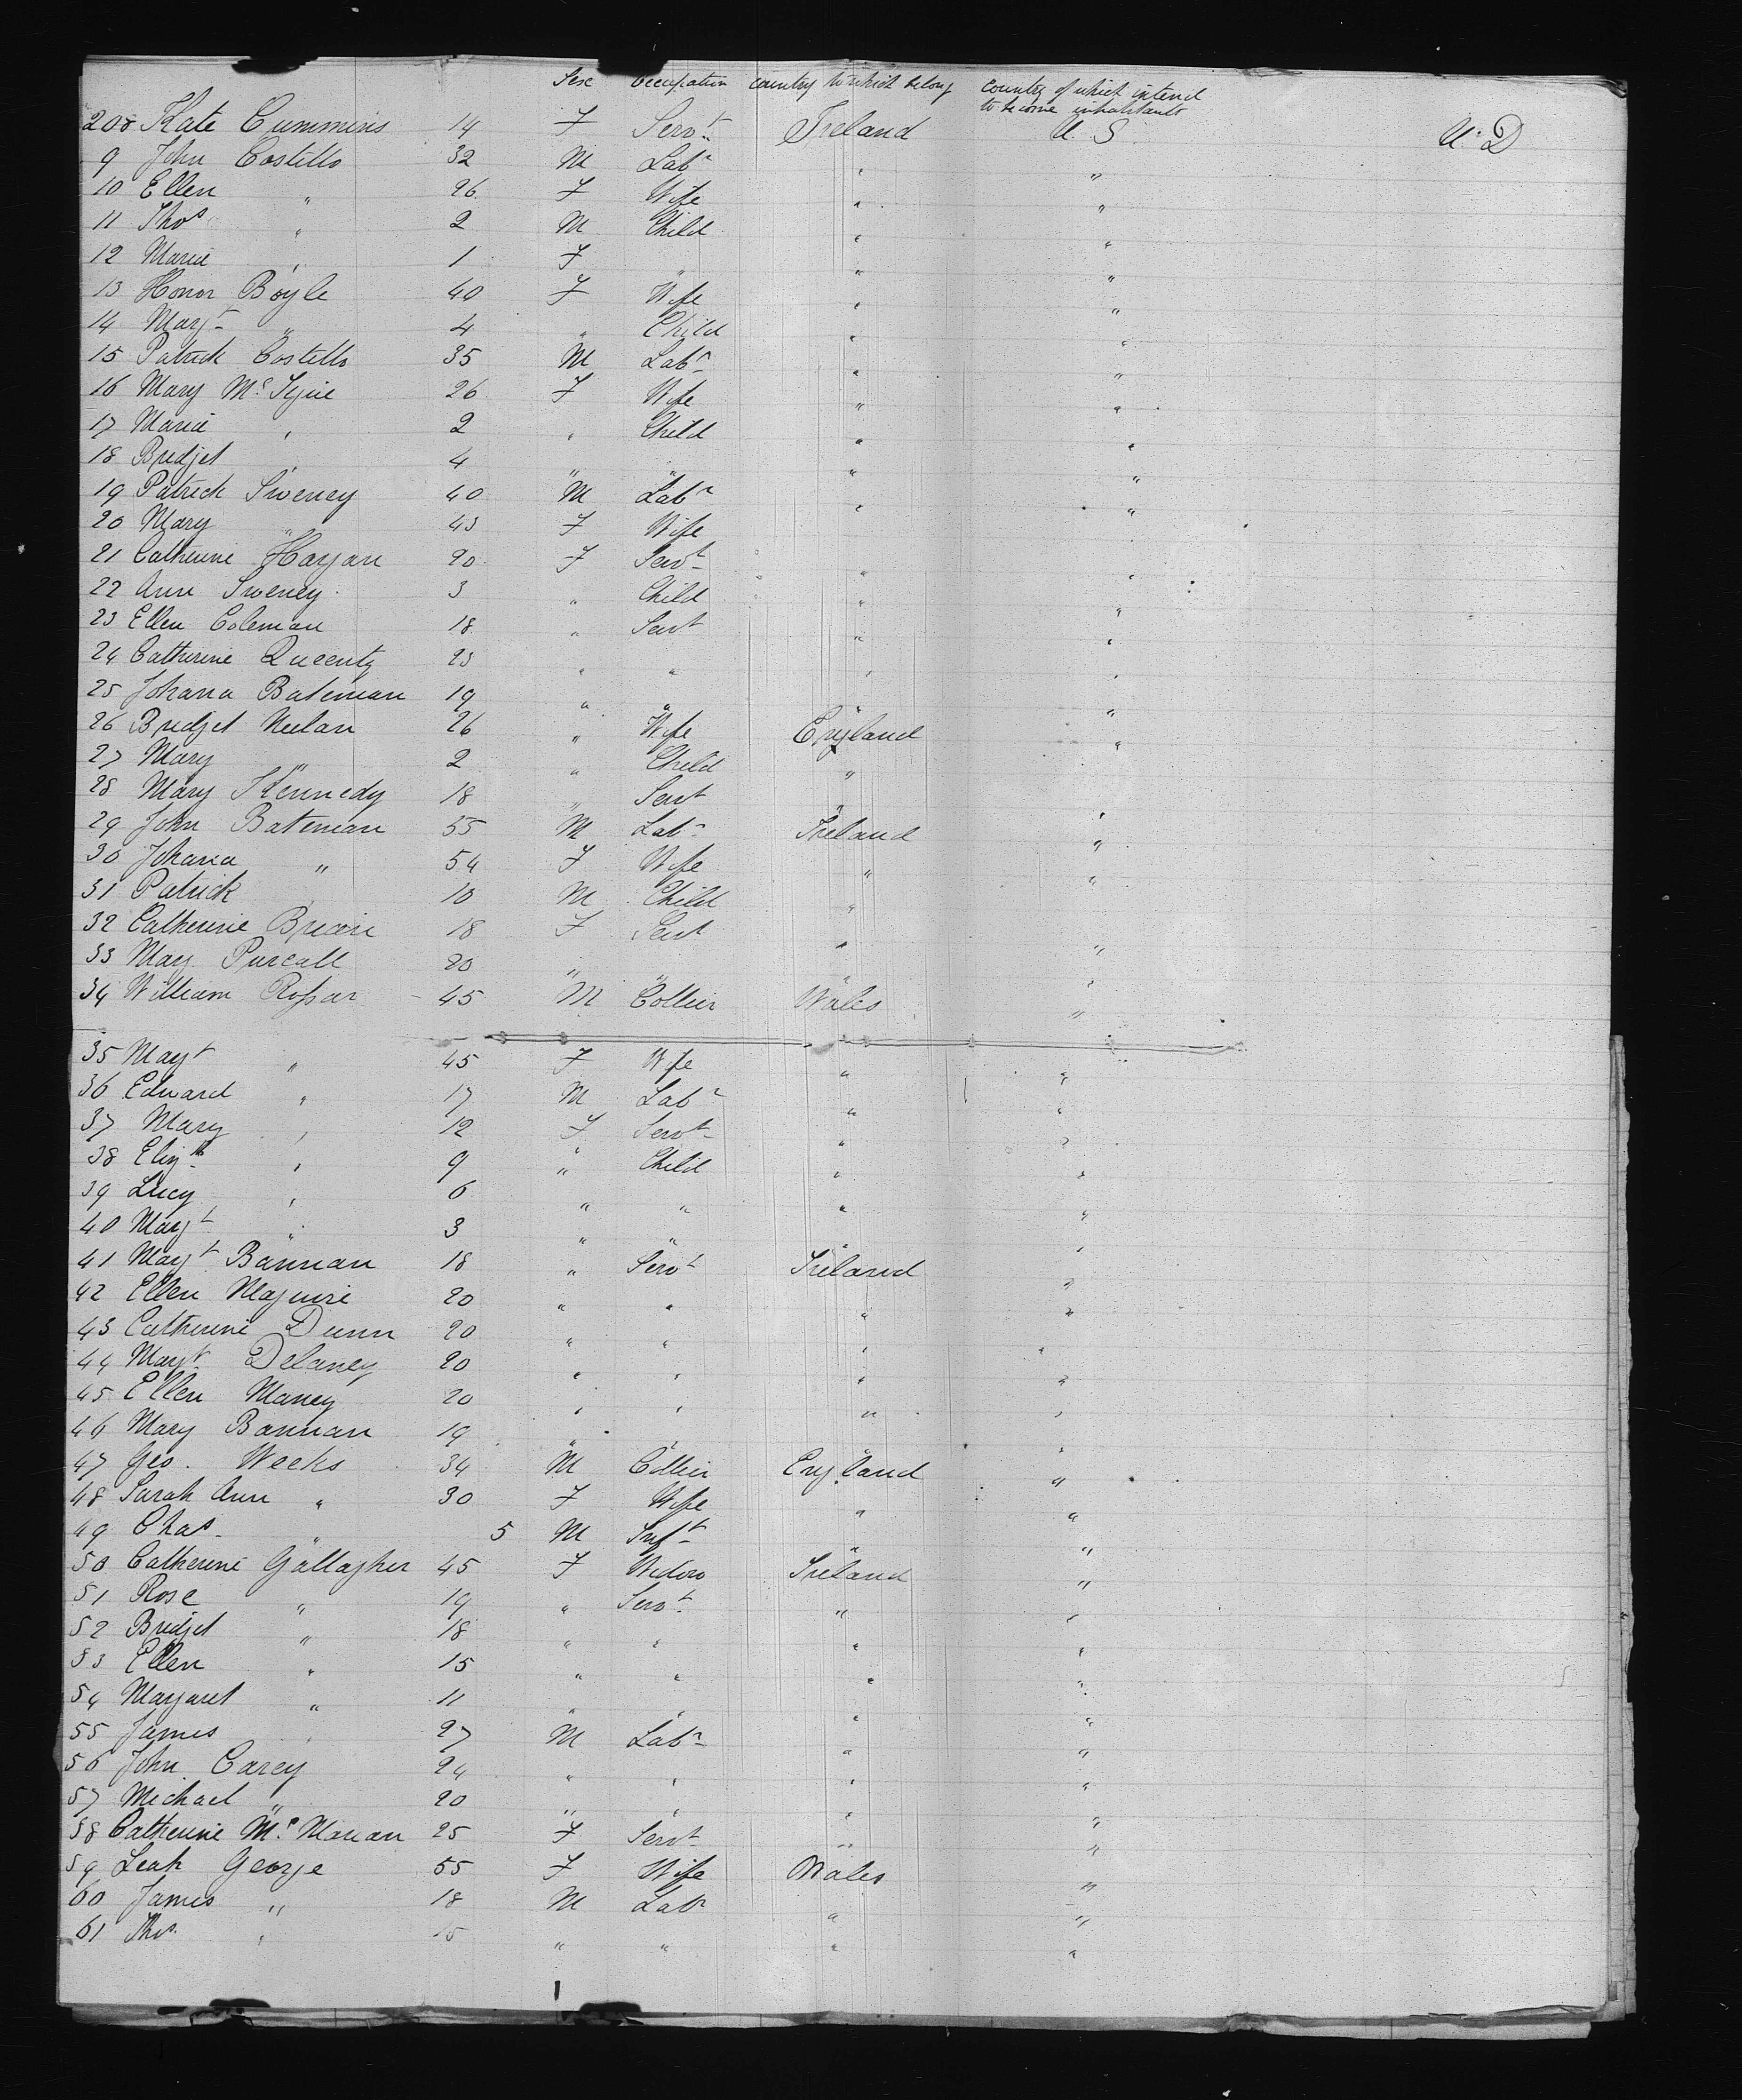 Sex Occupation Country to which belong Country of which intend
to become inhabitants
208 Kate Cummins 14 F Servt Ireland U. S. U. D
9 John Costello 32 M Labr " "
10 Ellen " 26 F Wife " "
11 Thos " 2 M Child " "
12 Maria " 1 F " " "
13 Honor Boyle 40 F Wife " "
14 Margt " 4 " Child " "
15 Patrick Costello 35 M Labr " "
16 Mary Mc 26 F Wife " "
17 Maria " 2 " Child " "
18 Bridget " 4 " " " "
19 Patrick Sweney 40 M Labr " "
20 Mary " 43 F Wife "
21 Catherine Hagan 20 F Servt " "
22 Ann Sweney 3 " Child " "
23 Ellen Coleman 18 " Servt " "
24 Catherine 23 " " " "
25 Johana Bateman 19 " " " "
26 Bridget Neelan 26 " Wife England "
27 Mary " 2 " Child "
28 Mary Kennedy 18 " Servt " "
29 John Bateman 55 M Labr Ireland "
30 Johana " 54 F Wife " "
31 Patrick 10 M Child "
32 Catherine 18 F Servt " "
33 Mary Purcall 20 " " " "
34 William Rossar 45 M Collier Wales "
35 Magt " 45 F Wife " "
36 Edward " 17 M Labr " "
37 Mary " 12 F Servt " "
38 Elizth " 9 " Child " "
39 Lucy " 6 " " " "
40 Magt " 3 " " " "
41 Magt Bannan 18 " Servt Ireland "
42 Ellen Maguire 20 " " " "
43 Catherine Dunn 20 " " " "
44 Magt Delaney 20 " " " "
45 Ellen Maney 20 " " " "
46 Mary Bannan 19 " " " "
47 Geo. Weeks 34 M Collier England "
48 Sarah Ann " 30 F Wife " "
49 Chas. " 5 M Inft " "
50 Catherine Gallagher 45 F Widow Ireland "
51 Rose " 19 " Servt " "
52 Bridget " 18 " " " "
53 Ellen " 15 " " " "
54 Margaret " 11 " " " "
55 James " 27 M Labr " "
56 John Carey 24 " " " "
57 Michael " 20 " " " "
58 Catherine Mc Manan 25 F Servt " "
59 Leah George 55 F Wife Wales "
60 James " 18 M Labr " "
61 Thos. " 15 " " " "